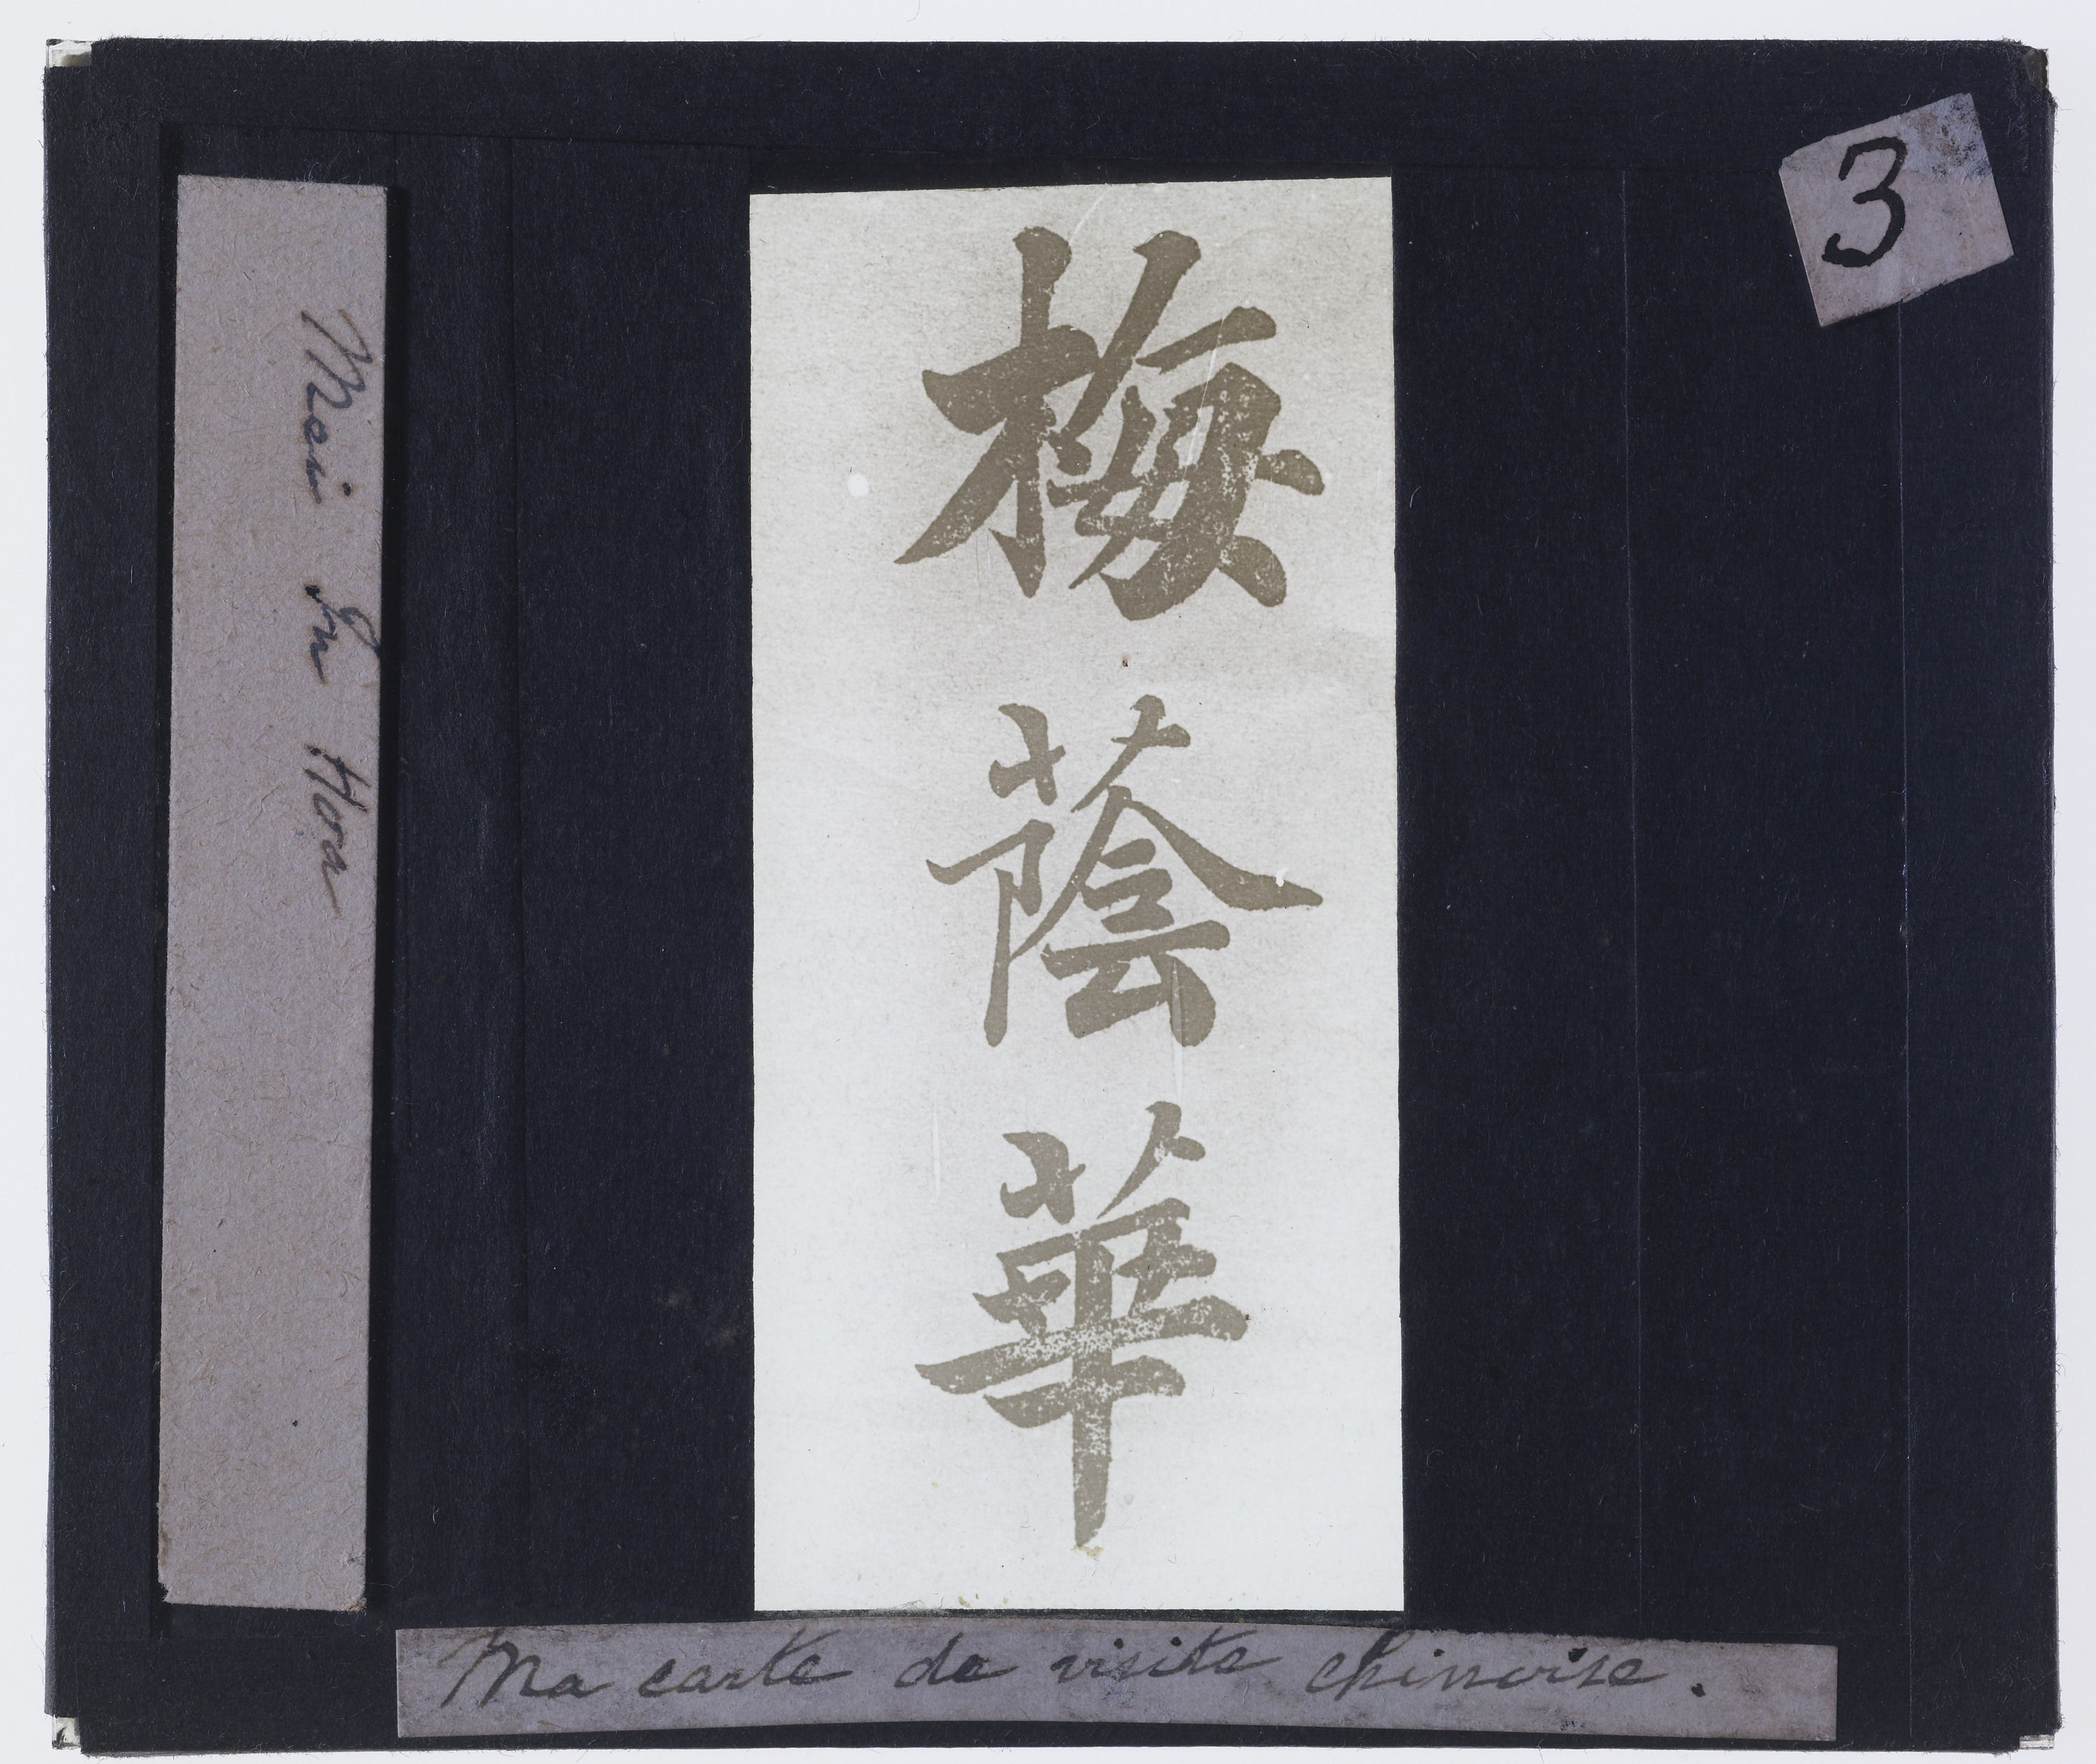 3
Mei In Hoa
梅
蔭
華
Ma carte de visite chinoise.